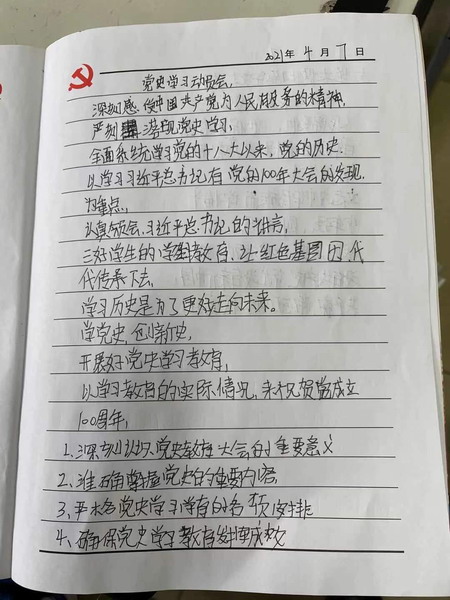 2021年 4 月 7 日
党史学习动员会,
深刻感受中国共产党为人民服务的精神,
严刻落现党史学习,
全面系统学习党的十八大以来,党的历史.
以学习习近平总书记在党的100年大会的发现.
为重点,
认真领会,习近平总书记的指言,
三好学生的学生教育.让红色基因代
代传承下去,
学习历史是为了更好走向未来。
学党史,创新史,
开展好党史学习教育,
以学习教育的实际情况,来祝贺党成立
100周年,
1、深刻认识党史教育大会的重要意义
2、准确掌握党史的重要内容
3、严格党史学习教育的各项安排
4、确保党史学习教育发挥成效